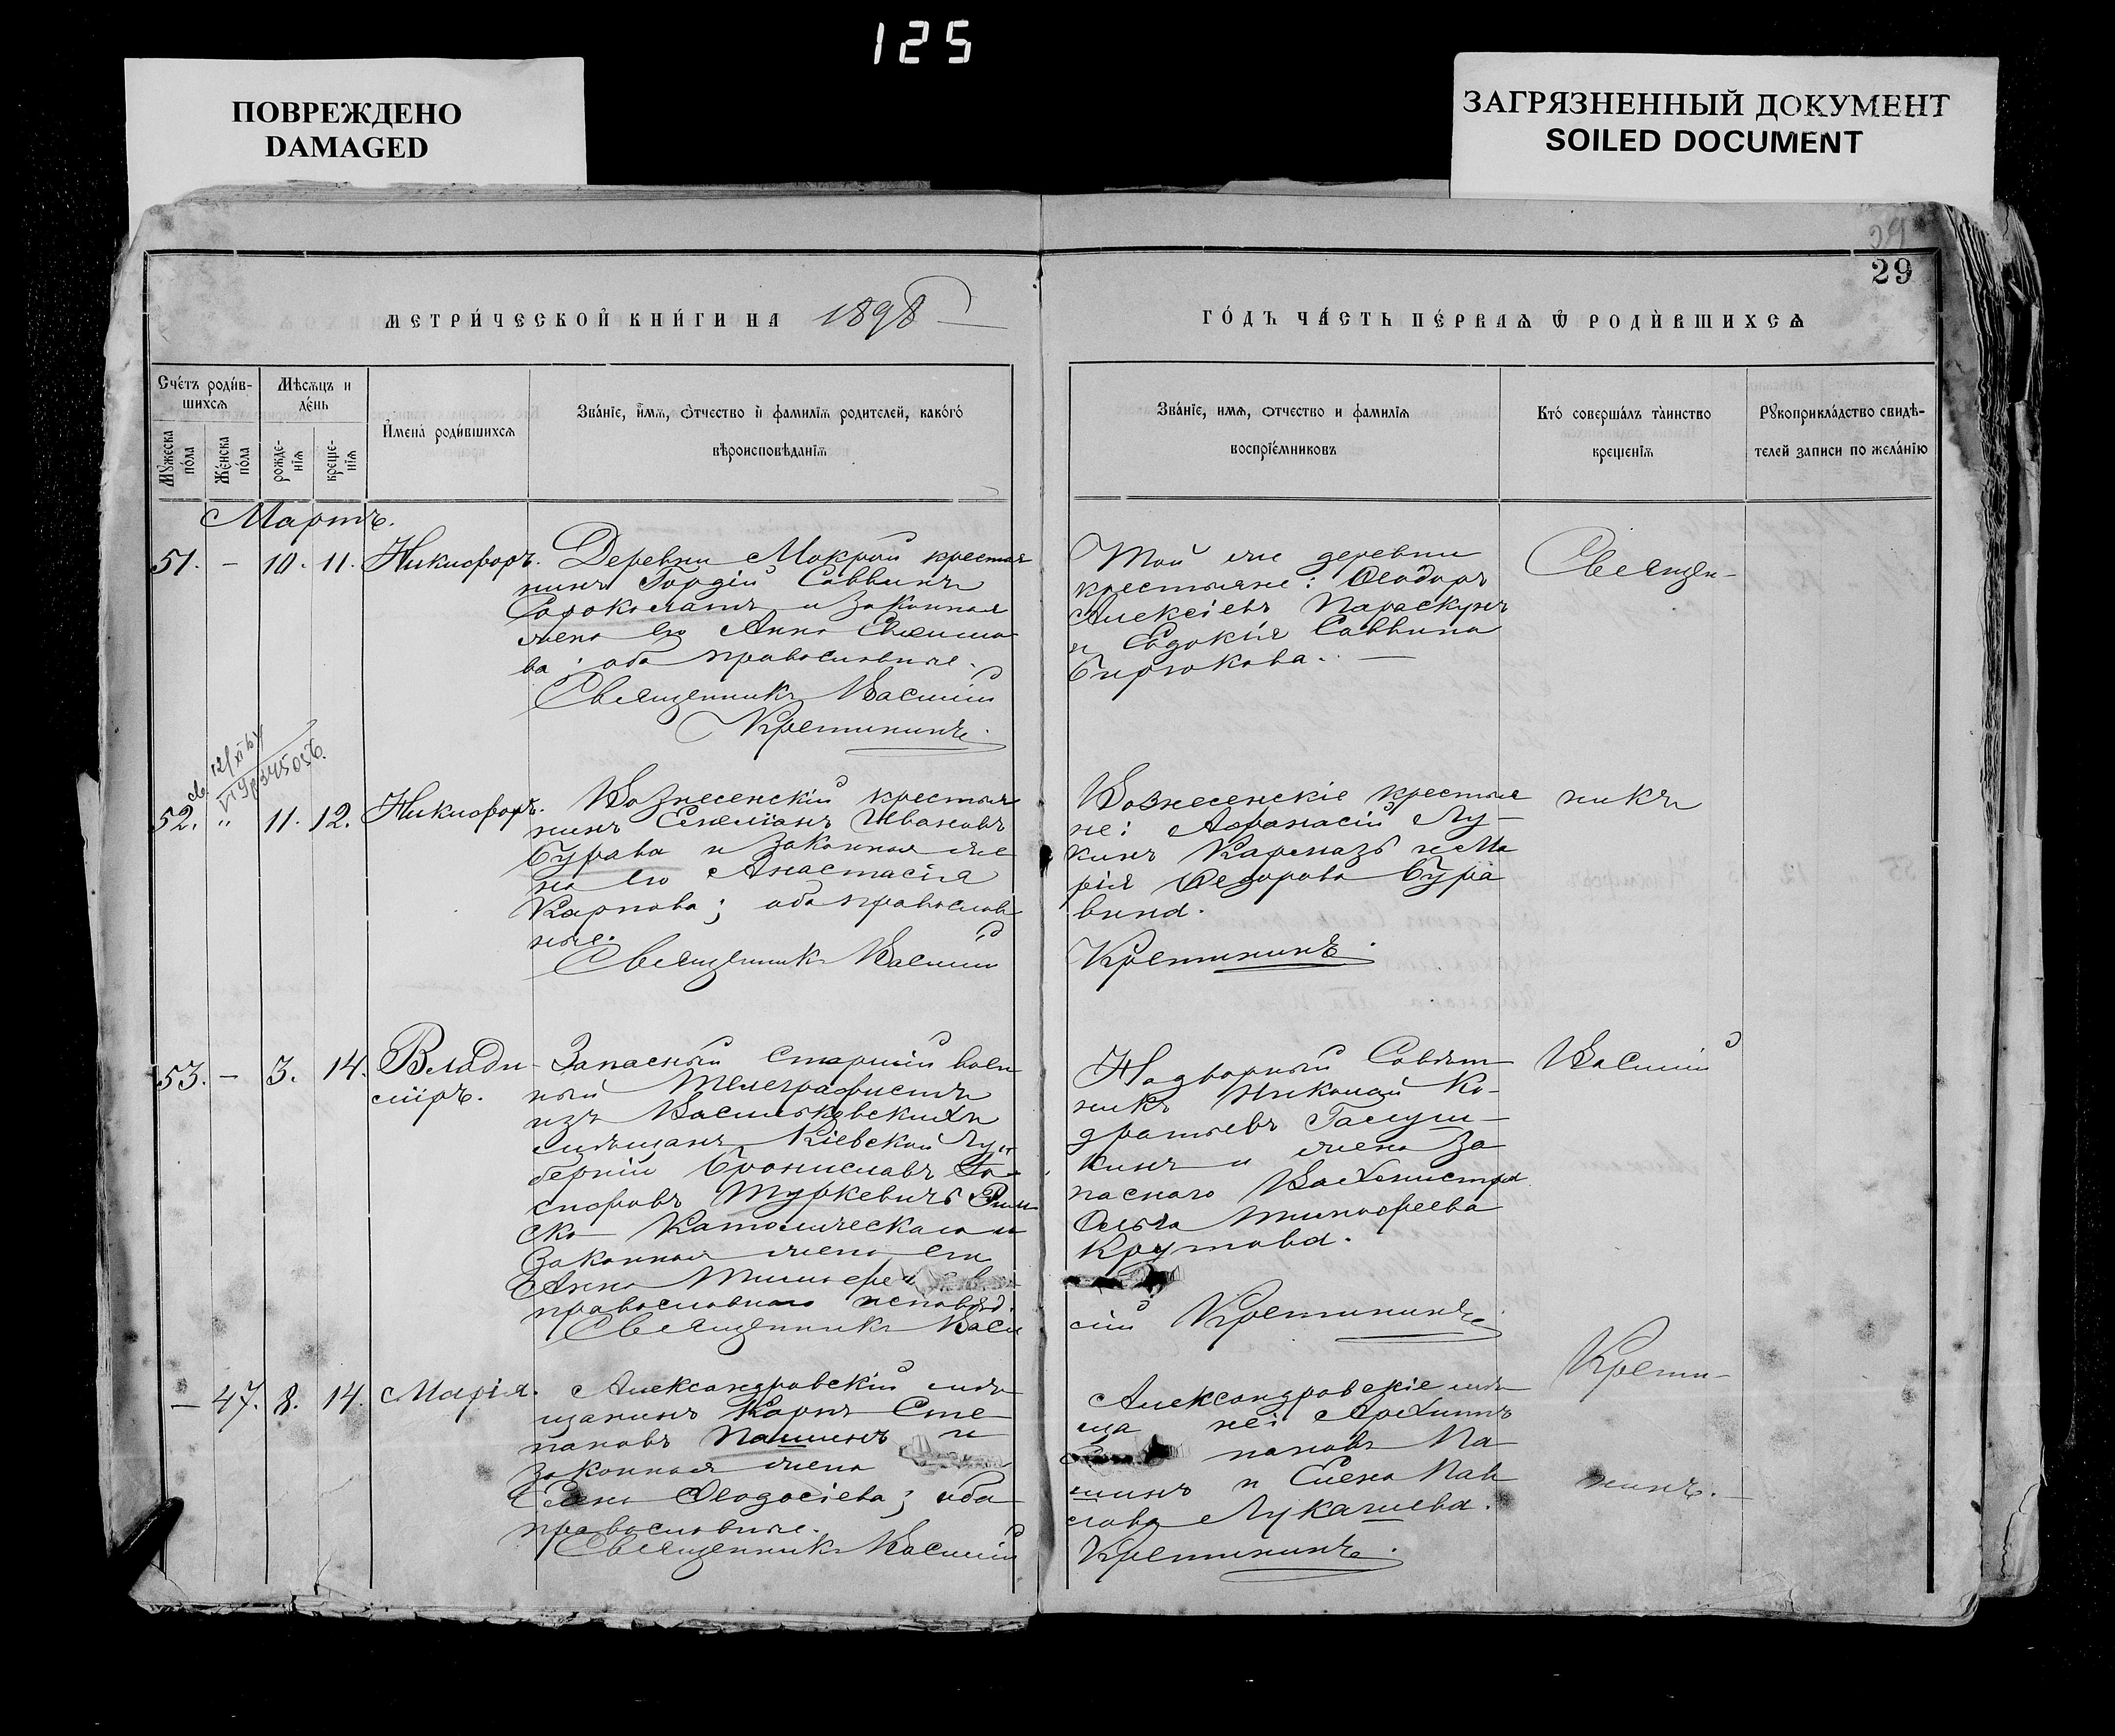 125
ПОВРЕЖДЕНО
DAMAGED
ЗАГРЯЗНЕННЫЙ ДОКУМЕНТ
SOILED DOCUMENT
29
МЕТРИ́ЧЕСКОЙ КНИ́ГИ НА 1898
ГО́ДЪ ЧА́СТЬ ПЕ́РВАѦ Ѿ РОДИ́ВШИХСѦ
Счетъ роди́в-
шихсѧ
Мѣсѧцъ и
де́нь
Мꙋжеска
по́ла
Же́нска
по́ла
рожде-
нїѧ
креще-
нїѧ
И҆мена̀ роди́вшихсѧ
Зва́нїе, и҆́мѧ, ѻ҆́тчество и҆ фамилїѧ родителей, како́гѡ
вѣроисповѣданїѧ
Зва́нїе, имѧ, ѻтчество и фамилїѧ
воспрїе́мниковъ
Кто́ совершалъ та́инство
крещенїѧ
Рꙋкоприкла́дство свидѣ-
телей записи по жела́нїю
Мартъ.
51. – 10. 11. Никифоръ.
Деревни Мокрой крестья
нинъ Гордій Саввинъ
и законная
жена его Анна
ва; оба православные.
Священникъ Василій
Кретининъ.
Той же деревни
крестьяне: Ѳеодоръ
Алексіевъ Параскунъ
и Евдокія Саввина
Бирюкова. –
Священ-
52. " 11. 12. Никифоръ.
Вознесенскій крестья
нинъ Емеліанъ Ивановъ
Бурава и законная же
на его Анастасія
Карпова; оба православ
ные.
Священникъ Василій
Вознесенскіе крестья
не: Аѳанасій Лу-
кинъ Кармазъ и Ма
рія Ѳедорова Бура
вина.
Кретининъ.
никъ
53. – 3. 14. Влади
міръ.
Запасный старшій воен
ный телеграфистъ
изъ Васильковскихъ
мѣщанъ Кіевской Гу
берніи Брониславъ Іо-
сифовъ Туркевичъ Рим
ско Католическаго и
законная жена его
Анна
православнаго исповѣд.
Священникъ Васи
Надворный Совѣт-
никъ Николай Ко-
дратьевъ Галуш-
кинъ и жена за
паснаго Вахмистра
Ольга Тимофеева
Крутова.
лій Кретининъ.
Василій
– 47. 8. 14. Марія.
Александровскій мѣ
щанинъ Карпъ Сте
пановъ Пашинъ и
законная жена
Елена Ѳеодосіева; оба
православные.
Священникъ Василій
Александровскіе мѣ
ща не: Архиппъ
пановъ Па
шинъ и Елена Пав
лова Лукашева.
Кретининъ.
Крети-
нинъ. –